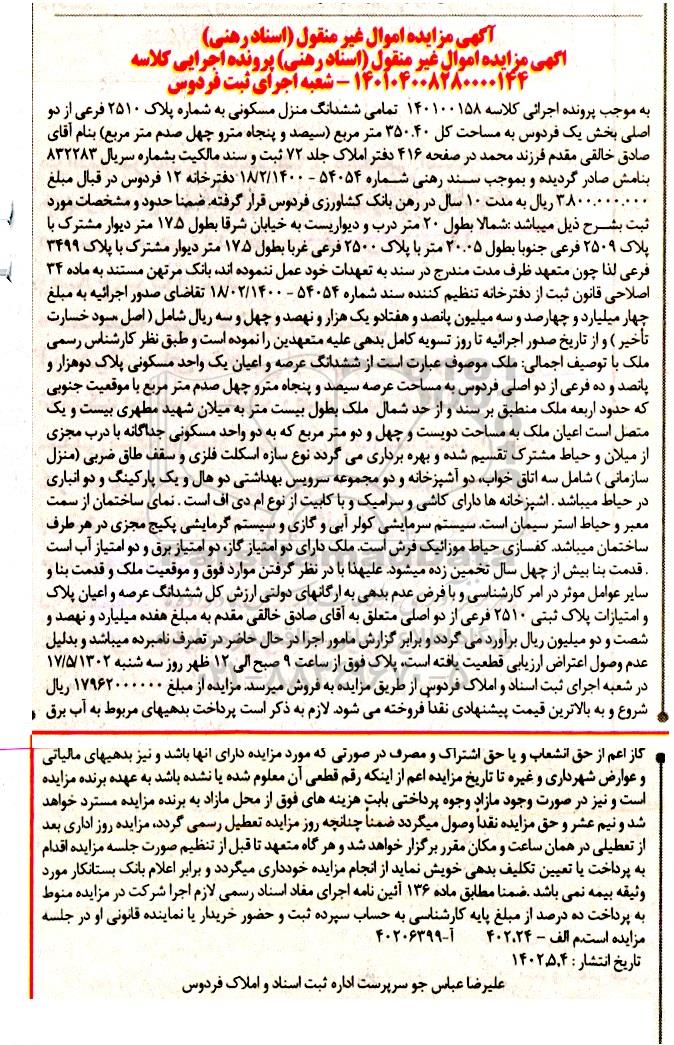 آگهی مزایده اموال غیر منقول (اسناد رهنی)
اگهی مزایده اموال غیر منقول (اسناد رهنی) پرونده اجرایی کلاسه
۱۴۰۱۰۴۰۰۸۲۸۰۰۰۰۱۴۴ – شعبه اجرای ثبت فردوس
به موجب پرونده اجرائی کلاسه ۱۴۰۱۰۰۱۵۸ تمامی ششدانگ منزل مسکونی به شماره پلاک ۲۵۱۰ فرعی از دو
اصلی بخش یک فردوس به مساحت کل ۳۵۰.۴۰ متر مربع (سیصد و پنجاه مترو چهل صدم متر مربع) بنام آقای
صادق خالقی مقدم فرزند محمد در صفحه ۴۱۶ دفتر املاک جلد ۷۲ ثبت و سند مالکیت بشماره سریال ۸۳۲۲۸۳
بنامش صادر گردیده و بموجب سند رهنی شماره ۵۴۰۵۴ – ۱۸/۲/۱۴۰۰ دفترخانه ۱۲ فردوس در قبال مبلغ
۳.۸۰۰.۰۰۰.۰۰۰ ریال به مدت ۱۰ سال در رهن بانک کشاورزی فردوس قرار گرفته. ضمنا حدود و مشخصات مورد
ثبت بشرح ذیل میباشد :شمالا بطول ۲۰ متر درب و دیواریست به خیابان شرقا بطول ۱۷.۵ متر دیوار مشترک با
پلاک ۲۵۰۹ فرعی جنوبا بطول ۲۰.۰۵ متر با پلاک ۲۵۰۰ فرعی غربا بطول ۱۷.۵ متر دیوار مشترک با پلاک ۳۴۹۹
فرعی لذا چون متعهد ظرف مدت مندرج در سند به تعهدات خود عمل ننموده اند، بانک مرتهن مستند به ماده ۳۴
اصلاحی قانون ثبت از دفترخانه تنظیم کننده سند شماره ۵۴۰۵۴ – ۱۸/۰۲/۱۴۰۰ تقاضای صدور اجرائیه به مبلغ
چهار میلیارد و چهارصد و سه میلیون پانصد و هفتادو یک هزار و نهصد و چهل و سه ریال شامل ( اصل ،سود خسارت
تأخیر ) و از تاریخ صدور اجرائیه تا روز تسویه کامل بدهی علیه متعهدین را نموده است و طبق نظر کارشناس رسمی
ملک با توصیف اجمالی: ملک موصوف عبارت است از ششدانگ عرصه و اعیان یک واحد مسکونی پلاک دوهزار و
پانصد و ده فرعی از دو اصلی فردوس به مساحت عرصه سیصد و پنجاه مترو چهل صدم متر مربع با موقعیت جنوبی
که حدود اربعه ملک منطبق بر سند و از حد شمال ملک بطول بیست متر به میلان شهید مطهری بیست و یک
متصل است اعیان ملک به مساحت دویست و چهل و دو متر مربع که به دو واحد مسکونی جداگانه با درب مجزی
از میلان و حیاط مشترک تقسیم شده و بهره برداری می گردد نوع سازه اسکلت فلزی و سقف طاق ضربی (منزل
سازمانی ) شامل سه اتاق خواب، دو آشپزخانه و دو مجموعه سرویس بهداشتی دو هال و یک پارکینگ و دو انباری
در حیاط میباشد . اشپزخانه ها دارای کاشی و سرامیک و با کابیت از نوع ام دی اف است . نمای ساختمان از سمت
معبر و حیاط استر سیمان است. سیستم سرمایشی کولر آبی و گازی و سیستم گرمایشی پکیج مجزی در هر طرف
ساختمان میباشد. کفسازی حیاط موزائیک فرش است. ملک دارای دو امتیاز گاز، دو امتیاز برق و دو امتیاز آب است
. قدمت بنا بیش از چهل سال تخمین زده میشود. علیهذا با در نظر گرفتن موارد فوق و موقعیت ملک و قدمت بنا و
سایر عوامل موثر در امر کارشناسی و با فرض عدم بدهی به ارگانهای دولتی ارزش کل ششدانگ عرصه و اعیان پلاک
و امتیازات پلاک ثبتی ۲۵۱۰ فرعی از دو اصلی متعلق به آقای صادق خالقی مقدم به مبلغ هفده میلیارد و نهصد و
شصت و دو میلیون ریال برآورد می گردد و برابر گزارش مامور اجرا در حال حاضر در تصرف نامبرده میباشد و بدلیل
عدم وصول اعتراض ارزیابی قطعیت یافته است، پلاک فوق از ساعت ۹ صبح الی ۱۲ ظهر روز سه شنبه ۱۷/۵/۱۳۰۲
در شعبه اجرای ثبت اسناد و املاک فردوس از طریق مزایده به فروش میرسد. مزایده از مبلغ ۱۷۹۶۲۰۰۰۰۰۰ ریال
شروع و به بالاترین قیمت پیشنهادی نقداً فروخته می شود. لازم به ذکر است پرداخت بدهیهای مربوط به آب برق
گاز اعم از حق انشعاب و یا حق اشتراک و مصرف در صورتی که مورد مزایده دارای آنها باشد و نیز بدهیهای مالیاتی
و عوارض شهرداری و غیره تا تاریخ مزایده اعم از اینکه رقم قطعی آن معلوم شده یا نشده باشد به عهده برنده مزایده
است و نیز در صورت وجود مازاد وجوه پرداختی بابت هزینه های فوق از محل مازاد به برنده مزایده مسترد خواهد
شد و نیم عشر و حق مزایده نقداً وصول میگردد ضمناً چنانچه روز مزایده تعطیل رسمی گردد، مزایده روز اداری بعد
از تعطیلی در همان ساعت و مکان مقرر برگزار خواهد شد و هر گاه متعهد تا قبل از تنظیم صورت جلسه مزایده اقدام
به پرداخت یا تعیین تکلیف بدهی خویش نماید از انجام مزایده خودداری میگردد و برابر اعلام بانک بستانکار مورد
وثیقه بیمه نمی باشد .ضمنا مطابق ماده ۱۳۶ آئین نامه اجرای مفاد اسناد رسمی لازم اجرا شرکت در مزایده منوط
به پرداخت ده درصد از مبلغ پایه کارشناسی به حساب سپرده ثبت و حضور خریدار یا نماینده قانونی او در جلسه
مزایده است.م الف – ۴۰۲.۲۴ آ-۴۰۲۰۶۳۹۹
تاریخ انتشار : ۱۴۰۲.۵.۴
علیرضا عباس جو سرپرست اداره ثبت اسناد و املاک فردوس